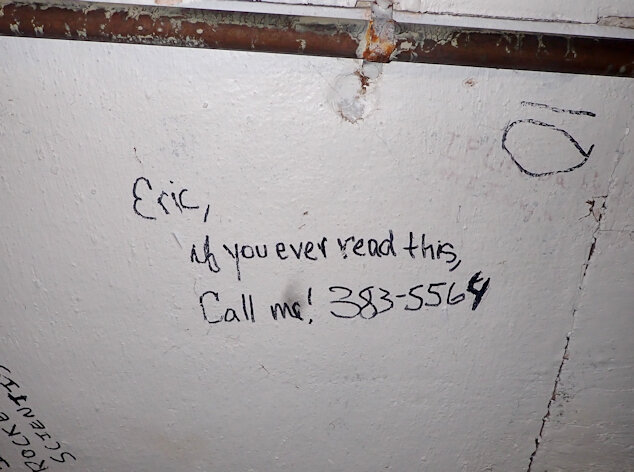 Eric,
if you ever read this,
Call me! 383-5564
ROCKE
SCIENTI